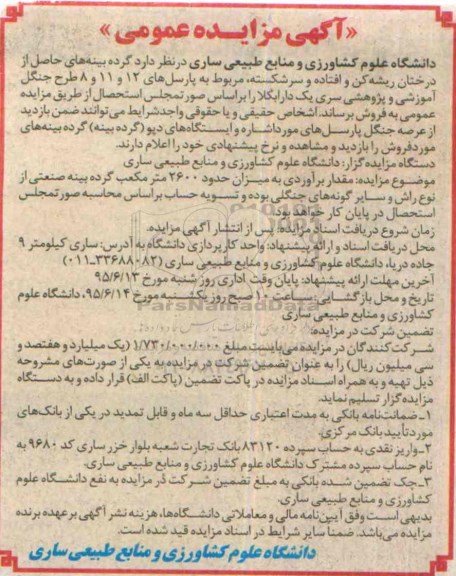 «آگهی مزایده عمومی»
دانشگاه علوم کشاورزی و منابع طبیعی ساری درنظر دارد گرده بینه‌های حاصل از
درختان ریشه‌کن و افتاده و سرشکسته، مربوط به پارسل‌های ۱۲ و ۱۱ و ۸ طرح جنگل
آموزشی و پژوهشی سری یک دارابکلا را براساس صورتمجلس استحصال از طریق مزایده
عمومی به فروش برساند. اشخاص حقیقی و یا حقوقی واجدشرایط می‌توانند ضمن بازدید
از عرصه جنگل پارسل‌های مورداشاره و ایستگاه‌های دپو (گرده بینه) گرده بینه‌های
موردفروش را بازدید و مشاهده و نرخ پیشنهادی خود را اعلام دارند.
دستگاه مزایده گزار: دانشگاه علوم کشاورزی و منابع طبیعی ساری
موضوع مزایده: مقدار برآوردی به میزان حدود ۲۶۰۰ متر مکعب گرده بینه صنعتی از
نوع راش و سایر گونه‌های جنگلی بوده و تسویه حساب براساس محاسبه صورتمجلس
استحصال در پایان کار خواهد بود.
زمان شروع دریافت اسناد مزایده: پس از انتشار آگهی مزایده.
محل دریافت اسناد و ارائه پیشنهاد: واحد کارپردازی دانشگاه به آدرس: ساری کیلومتر ۹
جاده دریا، دانشگاه علوم کشاورزی و منابع طبیعی ساری (۳۳۶۸۸۰۸۲-۰۱۱)
آخرین مهلت ارائه پیشنهاد: پایان وقت اداری روز شنبه مورخ ۹۵/۶/۱۳
تاریخ و محل بازگشایی: ساعت ۱۰ صبح روز یکشنبه مورخ ۹۵/۶/۱۴، دانشگاه علوم
کشاورزی و منابع طبیعی ساری
تضمین شرکت در مزایده:
شرکت‌کنندگان در مزایده می‌بایست مبلغ ۱/۷۳۰/۰۰۰/۰۰۰ (یک میلیارد و هفتصد و
سی میلیون ریال) را به عنوان تضمین شرکت در مزایده به یکی از صورت‌های مشروحه
ذیل تهیه و به همراه اسناد مزایده در پاکت تضمین (پاکت الف) قرار داده و به دستگاه
مزایده گزار تسلیم نماید.
۱- ضمانت‌نامه بانکی به مدت اعتباری حداقل سه ماه و قابل تمدید در یکی از بانک‌های
مورد تأیید بانک مرکزی.
۲- واریز نقدی به حساب سپرده ۸۳۱۲۰ بانک تجارت شعبه بلوار خزر ساری کد ۹۶۸۰ به
نام حساب سپرده مشترک دانشگاه علوم کشاورزی و منابع طبیعی ساری.
۳- چک تضمین شده بانکی به مبلغ تضمین شرکت در مزایده به نفع دانشگاه علوم
کشاورزی و منابع طبیعی ساری.
بدیهی است وفق آیین‌نامه مالی و معاملاتی دانشگاه‌ها، هزینه نشر آگهی برعهده برنده
مزایده می‌باشد. ضمنا سایر شرایط در اسناد مزایده قید شده است.
دانشگاه علوم کشاورزی و منابع طبیعی ساری
ParsNamadData